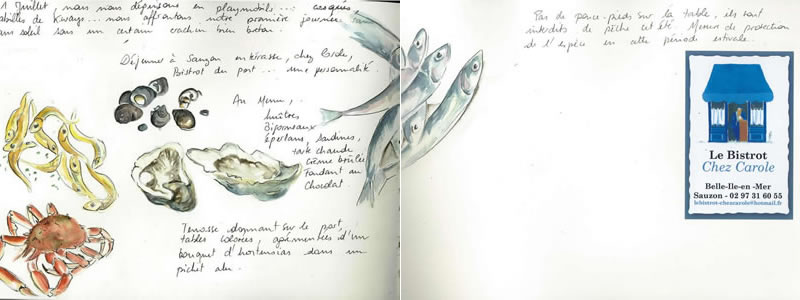 1 Juillet, nous nous déguisons en playmobils... casqués,
habillés de Kways... nous affrontons notre première journée
sans soleil sous un certain crachin bien breton.
Déjeuner à Sauzon en terasse, chez Carole,
Bistrot du port... une personnalité.
Au Menu,..
huîtres
Bigorneaux
Eperlans, sardines,
tarte chaude
Crème brûlée
Fondant au
Chocolat
Terrasse donnant sur le port,
tables colorées, agrémentées d'un
bouquet d'hortensias dans un
pichet alu.
Pas de pouce-pieds sur la table, ils sont
interdits de pêche cet été. Mesure de protection
de l'espèce en cette période estivale.
Le Bistrot
Chez Carole
Belle-Ile-en -Mer
Sauzon - 02 97 31 60 55
lebistrot-chezcarole@hotmail.fr